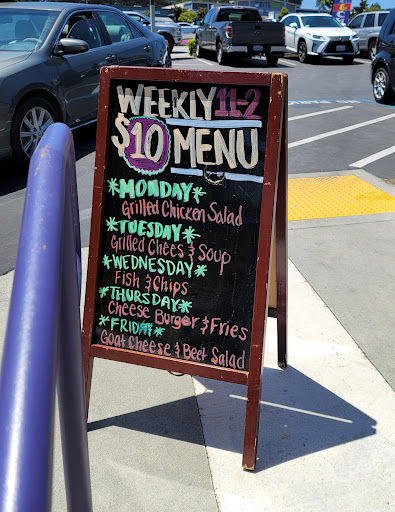 WEEKLY 11-2
$10 MENU
*MONDAY*
Grilled Chicken Salad
*TUESDAY*
Grilled Chees & Soup
*WEDNESDAY*
Fish & Chips
*THURSDAY*
Cheese Burger & Fries
*FRIDAY*
Goat Cheese & Beet Salad